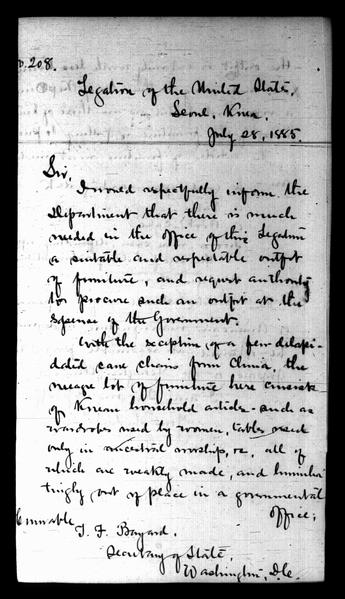 No. 208.
Legation of the United States,
Seoul, Korea.
July 28, 1885.
Sir,
I would respectfully inform the
Department that there is much
needed in the office of this Legation
a suitable and respectable outfit
of furniture, and request authority
to procure such an outfit at the
expense of the Government.
With the exception of a few delapi-
dated cane chairs from China, the
meagre lot of furniture here consists
of Korean household articles - such as
wardrobes used by women, tables used
only in ancestral worship, &c, all of
which are weakly made, and humilia-
tingly out of place in a governmental
office;
Honorable
T. F. Bayard.
Secretary of State,
Washington, D.C.